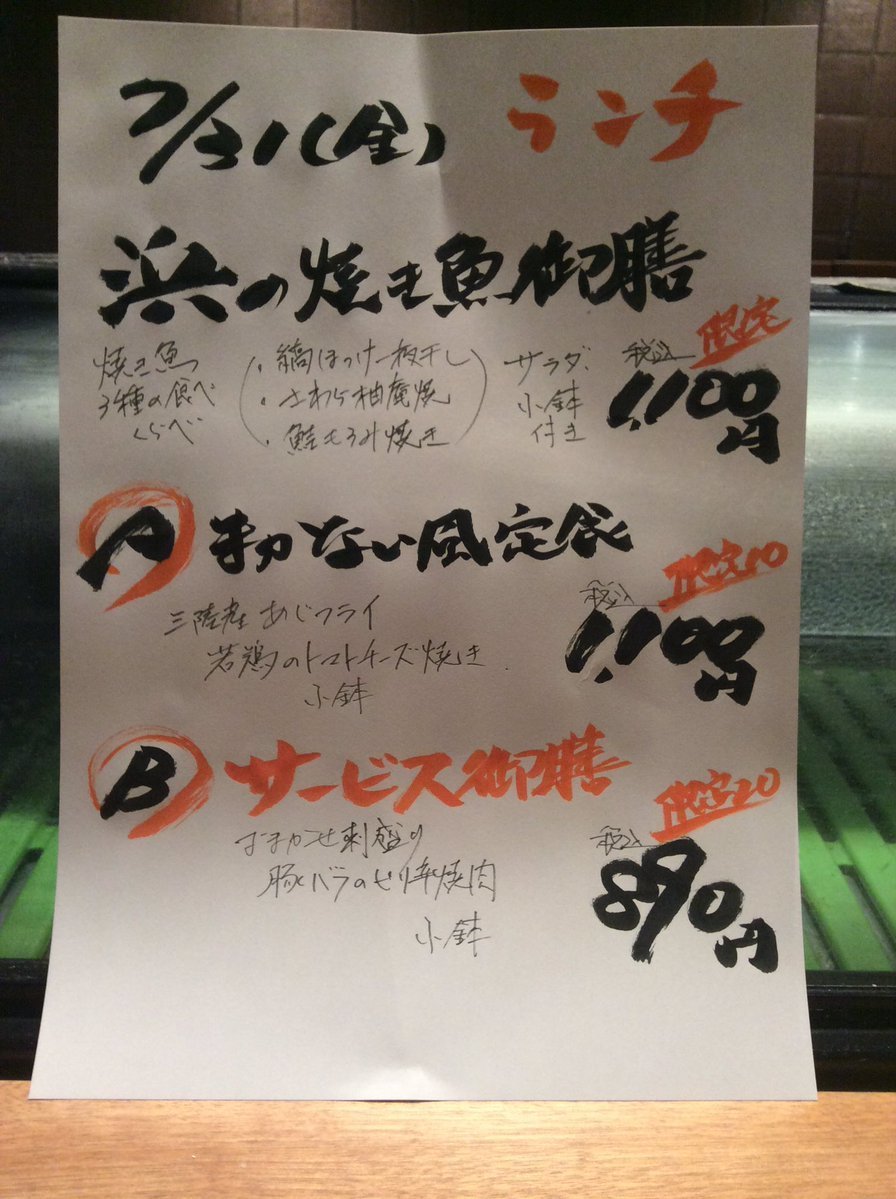 7/31(金) ランチ
浜の焼き魚御膳
限定
焼き魚
3種の食べ
くらべ
・縞ほっけ一夜干し
・さわら柚庵焼
・鮭もろみ焼き
サラダ、
小鉢
付き
税込
1,100円
A まかない風定食
限定10
三陸産 あじフライ
若鶏のトマトチーズ焼き
小鉢
税込
1,100円
B サービス御膳
限定20
おまかせ刺盛り
豚バラのピリ辛焼肉
小鉢
税込
890円